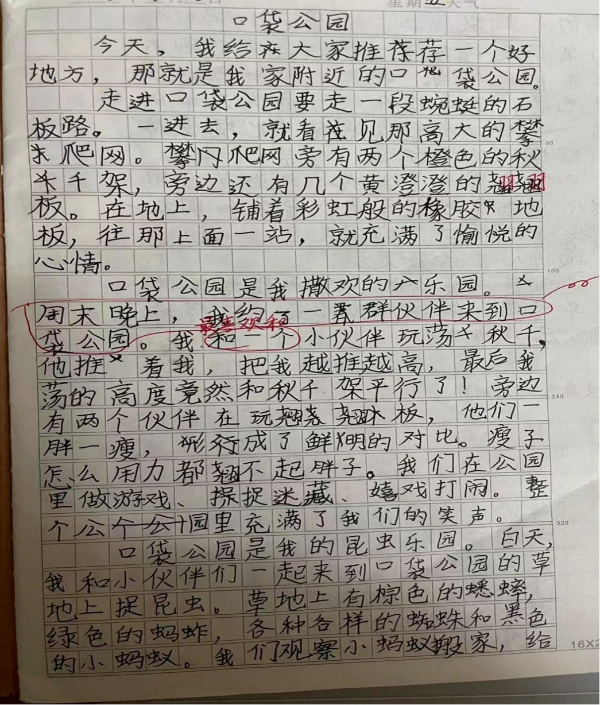 星期五天气
口袋公园
今天，我给大家推荐荐一个好
地方，那就是我家附近的口袋公园。
走进口袋公园要走一段蜿蜒的石
板路。一进去，就看见那高大的攀
爬网。攀爬网旁有两个橙色的秋
千架，旁边还有几个黄澄澄的翘翘
板。在地上，铺着彩虹般的橡胶地
板，往那上面一站，就充满了愉悦的
心情。
口袋公园是我撒欢的乐园。
周末晚上，我约了一群群伙伴来到口
袋公园。我和一个小伙伴玩荡秋千，
最喜欢和
他推着我，把我越推越高，最后我
荡的高度竟然和秋千架平行了！旁边
有两个伙伴在玩翘翘板，他们一
胖一瘦，形成了鲜明的对比。瘦子
怎么用力都翘不起胖子。我们在公园
里做游戏、捉迷藏、嬉戏打闹。整
个公个公园里充满了我们的笑声。
口袋公园是我的昆虫乐园。白天，
我和小伙伴们一起来到口袋公园的草
地上捉昆虫。草地上有棕色的蟋蟀，
绿色的蚂蚱，各种各样的蜘蛛和黑色
的小蚂蚁。我们观察小蚂蚁搬家，给
100
240
320
16X2